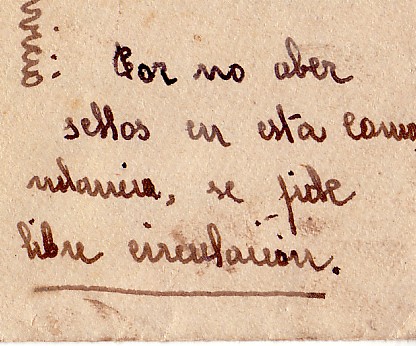 Por no aber
sellos en esta coma
ndancia, se pide
libre circulación.